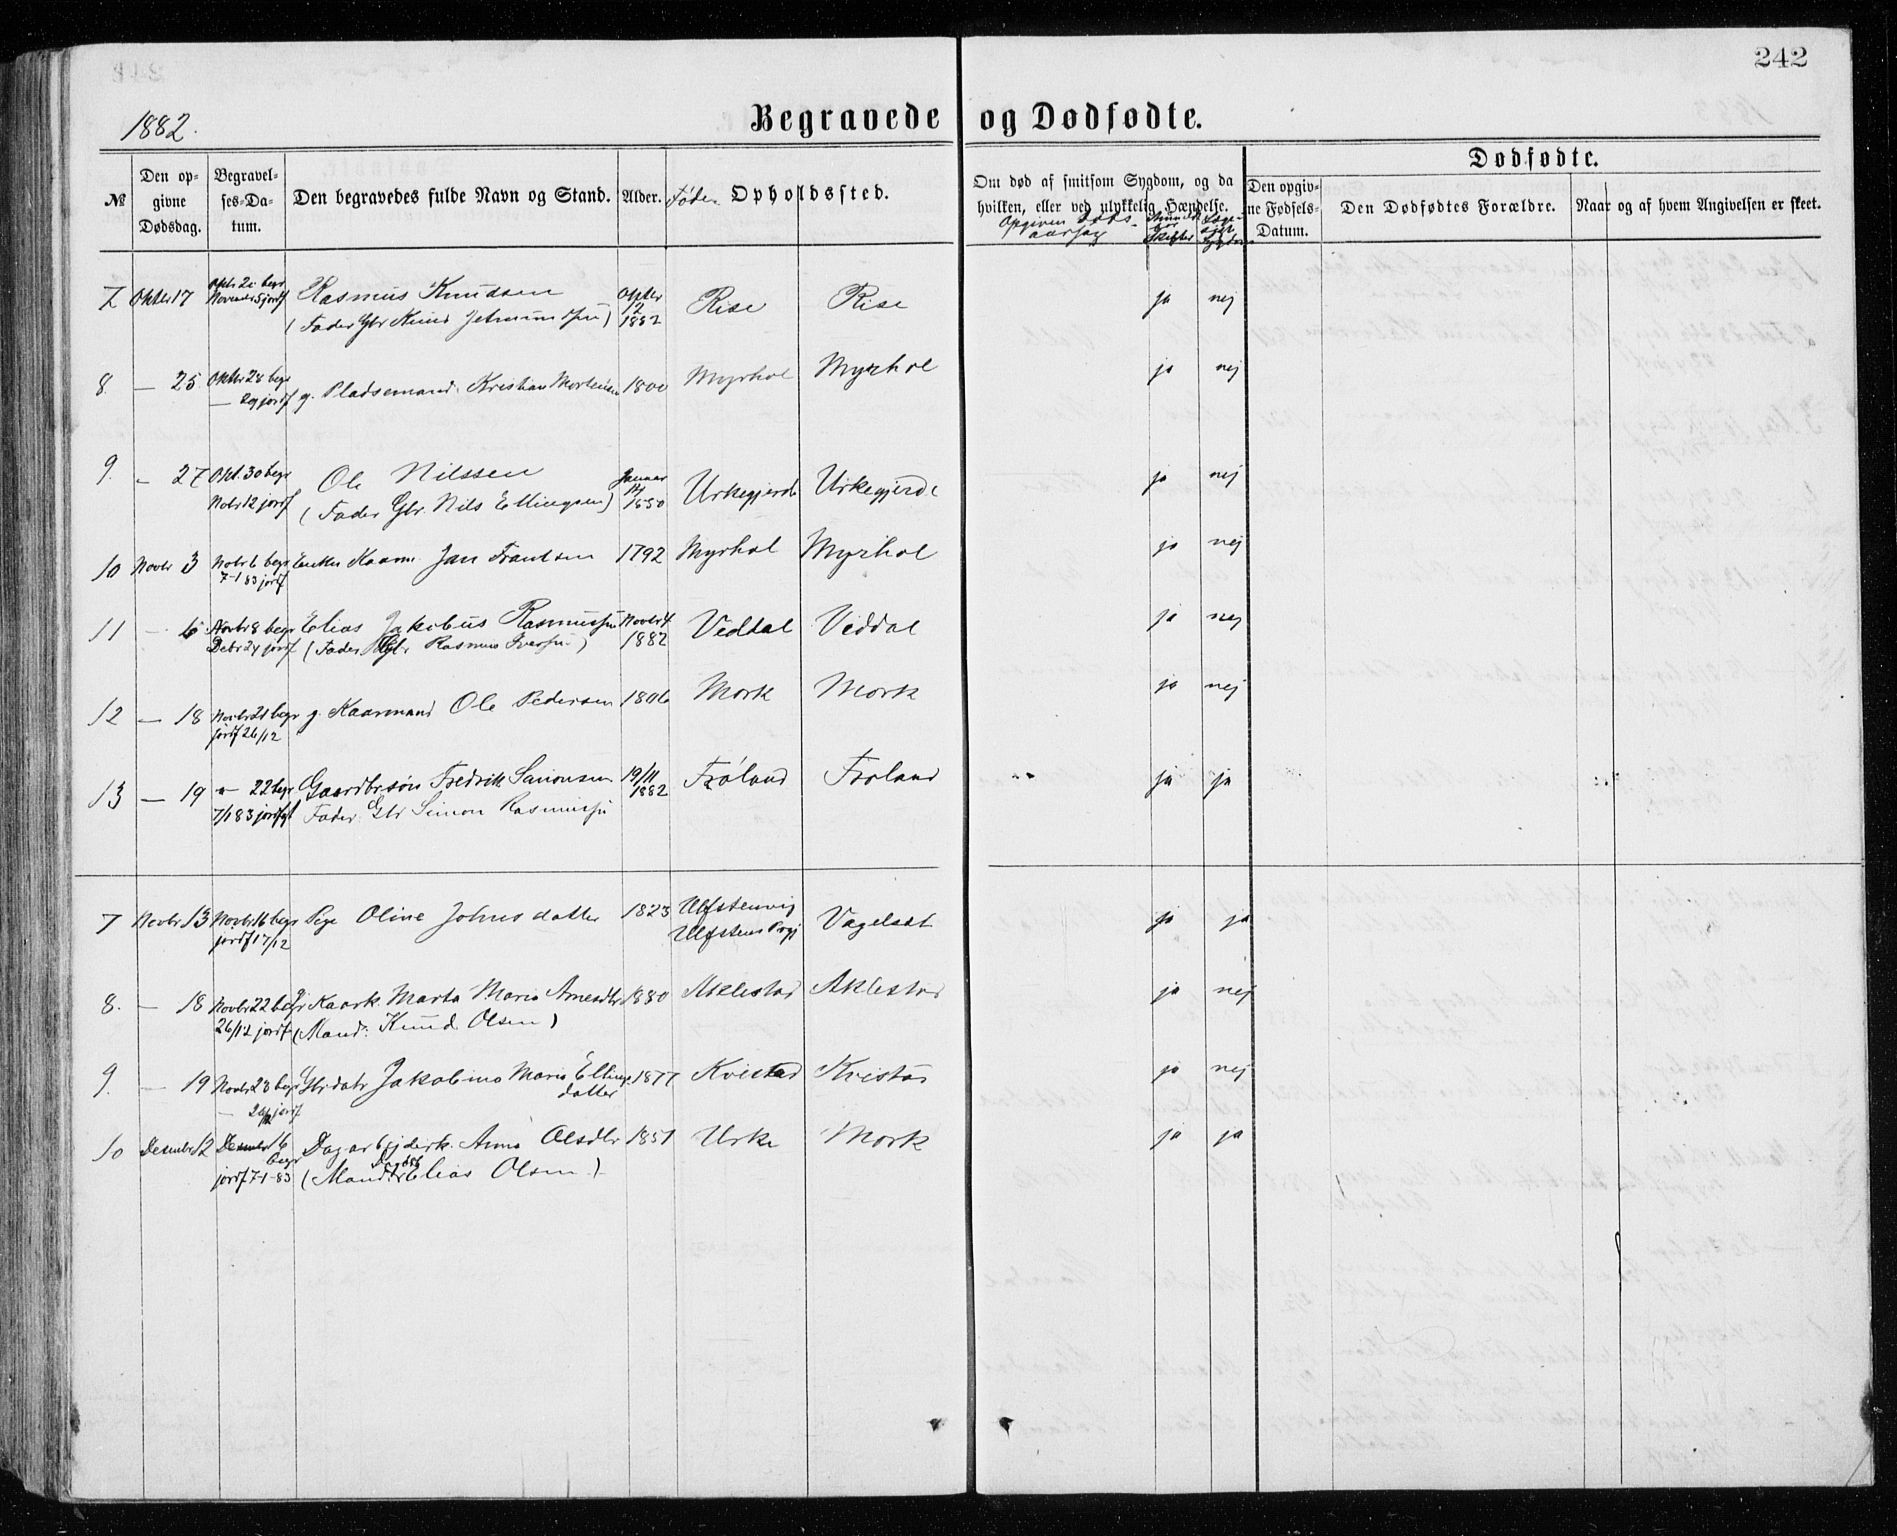 242
1882.
Begravede og Dødfødte.
№
Den opgivne Dødsdag.
Begravelses-Datum.
Den begravedes fulde Navn og Stand.
Alder.
Føde- Opholdssted.
Om død af smitsom Sygdom, og da hvilken, eller ved ulykkelig Hændelse.
Opgiven Døds-aarsag
Dødfødte.
Den opgivne Fødsels-Datum.
Den Dødfødtes Forældre.
Naar og af hvem Angivelsen er skeet.
7 Okter 17 Rasmus Knudsen Okter 12 1882 Rise Rise ja nej
Novembr 5 jordf (Fader Gbr Knud
8. — 25 Okter 28 begr g. Pladsemand Kristian Mortensen 1800 Myrhol Myrhol ja nej
— 29 jordf
9. — 27 Okt. 30 begr Ole Nilssen Januar 1850 Urkegjerde Urkegjerde ja nej
Nobr 12 jordf (Fader Gbr. Nils Ellingsen)
10 Novbr 3 Nobr 6 begr Enken Kaarm. Jan Frantsen 1792 Myrhol Myrhol ja nej
7-1 83 jordf
11 — 6 Novbr 8 begr Elias Jakobus Rasmussen Novbr 4 1882 Veddal Veddal ja nej
Debr 24 jordf (Fader Gbr Rasmus Iversen)
12 — 18 Novbr 21 begr g. Kaarmand Ole Pedersen 1806 Mork Mork ja nej
jordf 26/12
13 — 19 — 22 begr Gaardbrsøn Fredrik Simonsen 19/11 1882 Frøland Froland ja ja
7/1 83 jordf Fader Gbr Simon Rasmussen
7 Novbr 13 Novbr 16 begr Pige Oline Johnsdatter 1823 Ulfstenvig Ulfstens Prgj Vagelsæt ja ja
jordf 17/12
8. — 18 Novbr 22 begr Kaark. Marta Maria Arnesdtr 1880 Aklestad Aklestad ja nej
26/12 jordf (Mand: Knud Olsen)
9. — 19 Novbr 23 begr Gbrdatr Jakobina Maria Ellings datter 1877 Kvistad Kvistad ja nej
— jordf
10 Desember 12 Desember 16 begr Dagarbejderk. Anna Olsdtr 1851 Urke Mork ja ja
jordf 7-1-83 (Mand: Elias Olsen)